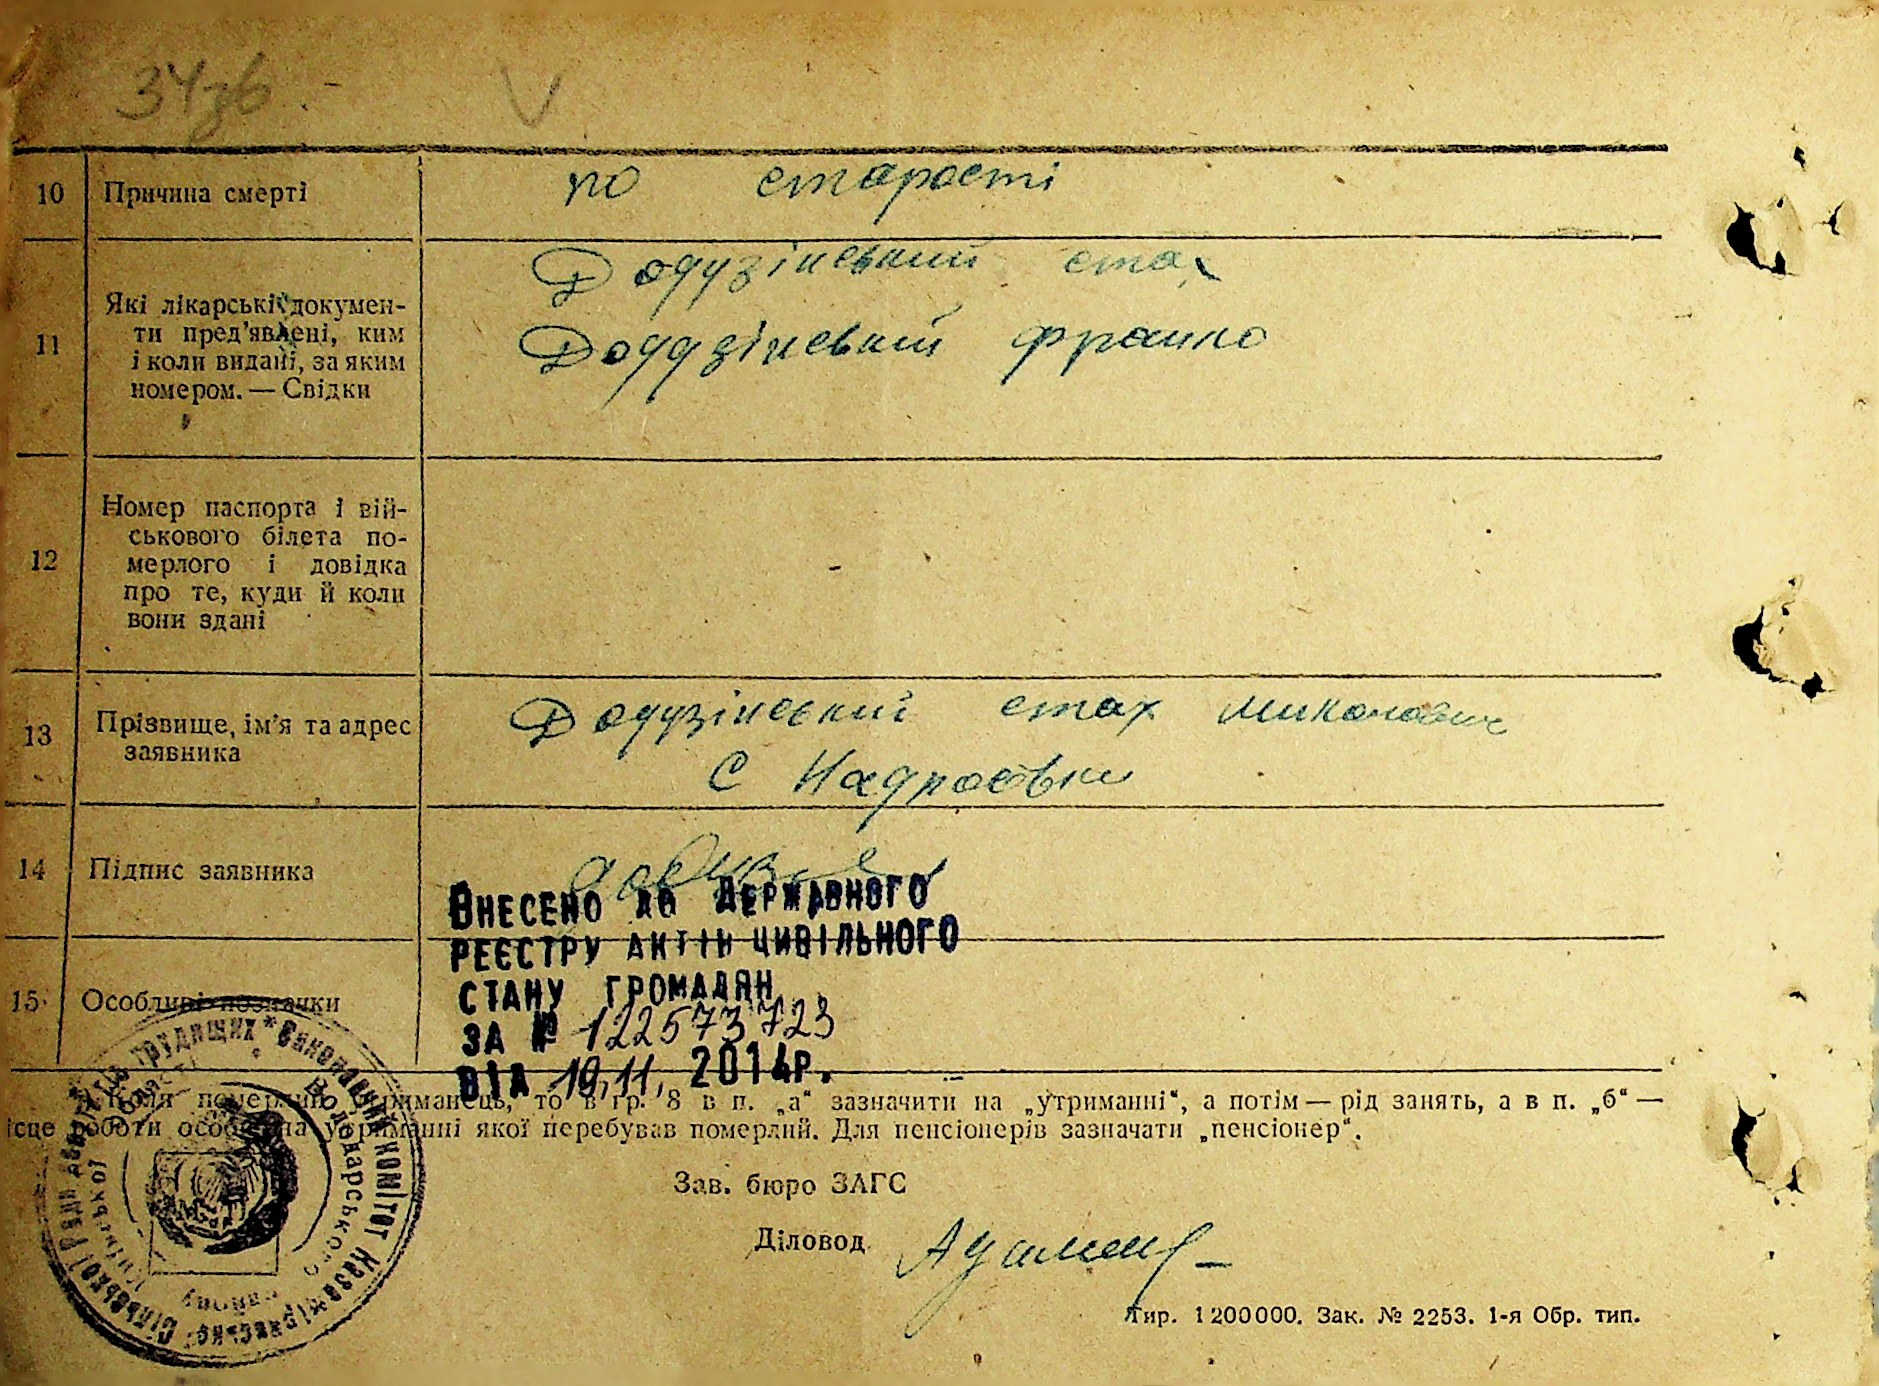 10 Причина смерті по старості
11 Які лікарські документи пред'явлені, ким і коли видані, за яким номером. — Свідки
Доцузінський стах
Доцузінський франко
12 Номер паспорта і вій-
ськового білета по-
мерлого і довідка
про те, куди й коли
вони здані
13 Прізвище, ім'я та адрес
заявника
стах миколович
С
14 Підпис заявника
Внесено до державного
реєстру актів цивільного
15 Особливі позначки
стану громадян
за № 122573723
від 19.11. 2014р.
Коли померлий утриманець, то в гр. 8 в п. „а“ зазначити на „утриманні“, а потім — рід занять, а в п. „б“ —
ісце роботи особи, на утриманні якої перебував померлий. Для пенсіонерів зазначати „пенсіонер“.
Зав. бюро ЗАГС
Діловод
Тир. 1200000. Зак. № 2253. 1-я Обр. тип.
Виконавчий комітет
Володарського
сільської Ради депутатів трудящих
Київської області